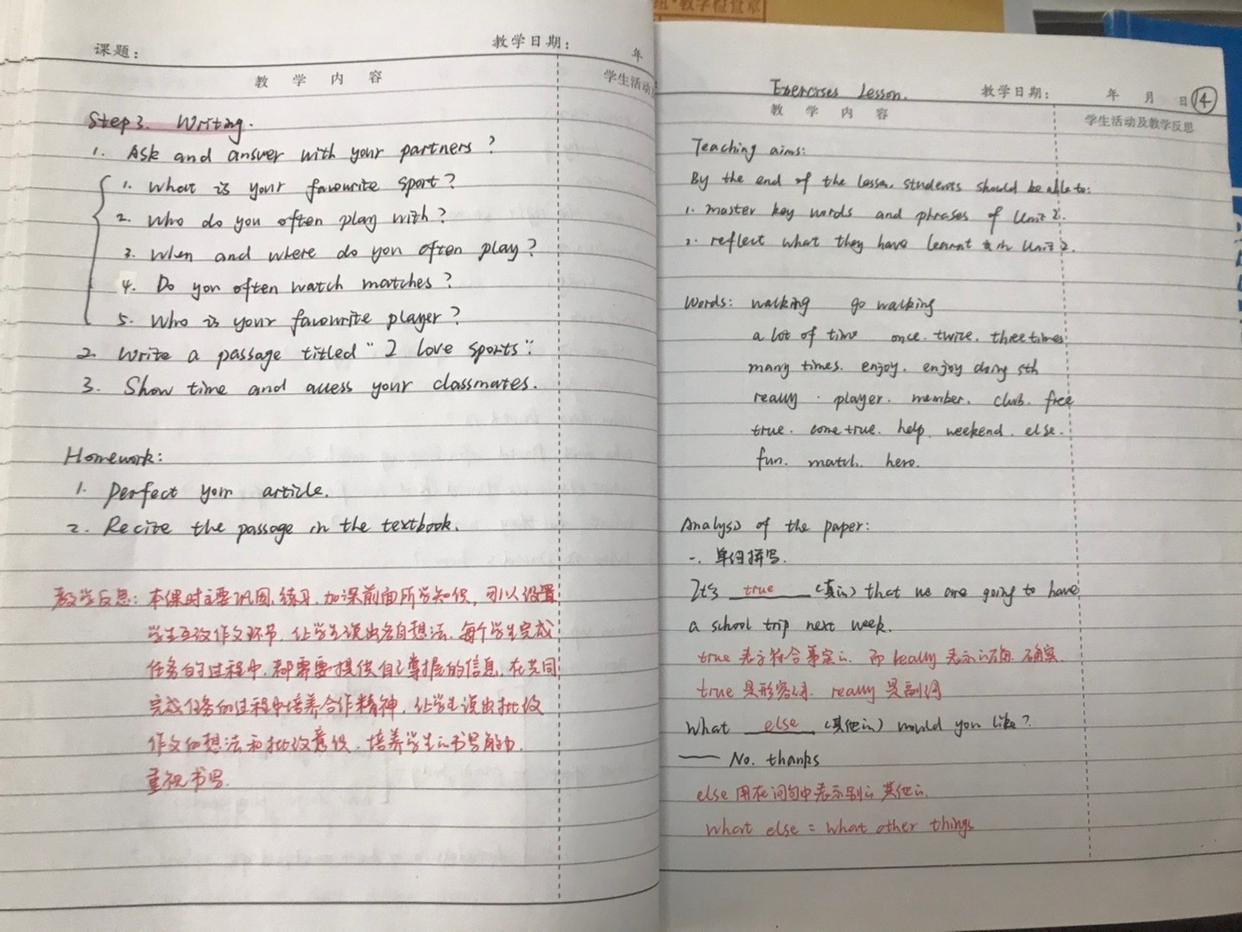 课题：
教学日期：
年
教学内容
学生活动
Step 3. Writing.
1. Ask and answer with your partners?
1. What is your favourite sport?
2. Who do you often play with?
3. When and where do you often play?
4. Do you often watch matches?
5. Who is your favourite player?
2. Write a passage titled "I love sports".
3. Show time and assess your classmates.
Homework:
1. Perfect your article.
2. Recite the passage in the textbook.
教学反思：本课时主要巩固、练习、加深前面所学知识，可以设置
学生互改作文环节，让学生说出各自想法，每个学生完成
任务的过程中，都需要提供自己掌握的信息，在共同
完成任务的过程中培养合作精神，让学生说出批改
作文的想法和批改意识，培养学生的书写能力，
重视书写.
教学检查章
Exercises Lesson.
教学日期：
年 月 日 14
教学内容
学生活动及教学反思
Teaching aims:
By the end of the lesson, students should be able to:
1. master key words and phrases of Unit 2.
2. reflect what they have learnt Unit 2.
Words: walking go walking
a lot of time once. twice. three times
many times. enjoy. enjoy doing sth
really. player. member. club. free
true. come true. help. weekend. else.
fun. match. hero.
Analysis of the paper:
一. 单词拼写.
It's true (真的) that we are going to have
a school trip next week.
true 表示符合事实的 而 really 表示的确. 确实.
true 是形容词. really 是副词
What else (其他的) would you like?
— No. thanks
else 用在问句中表示别的 其他的.
What else = what other things